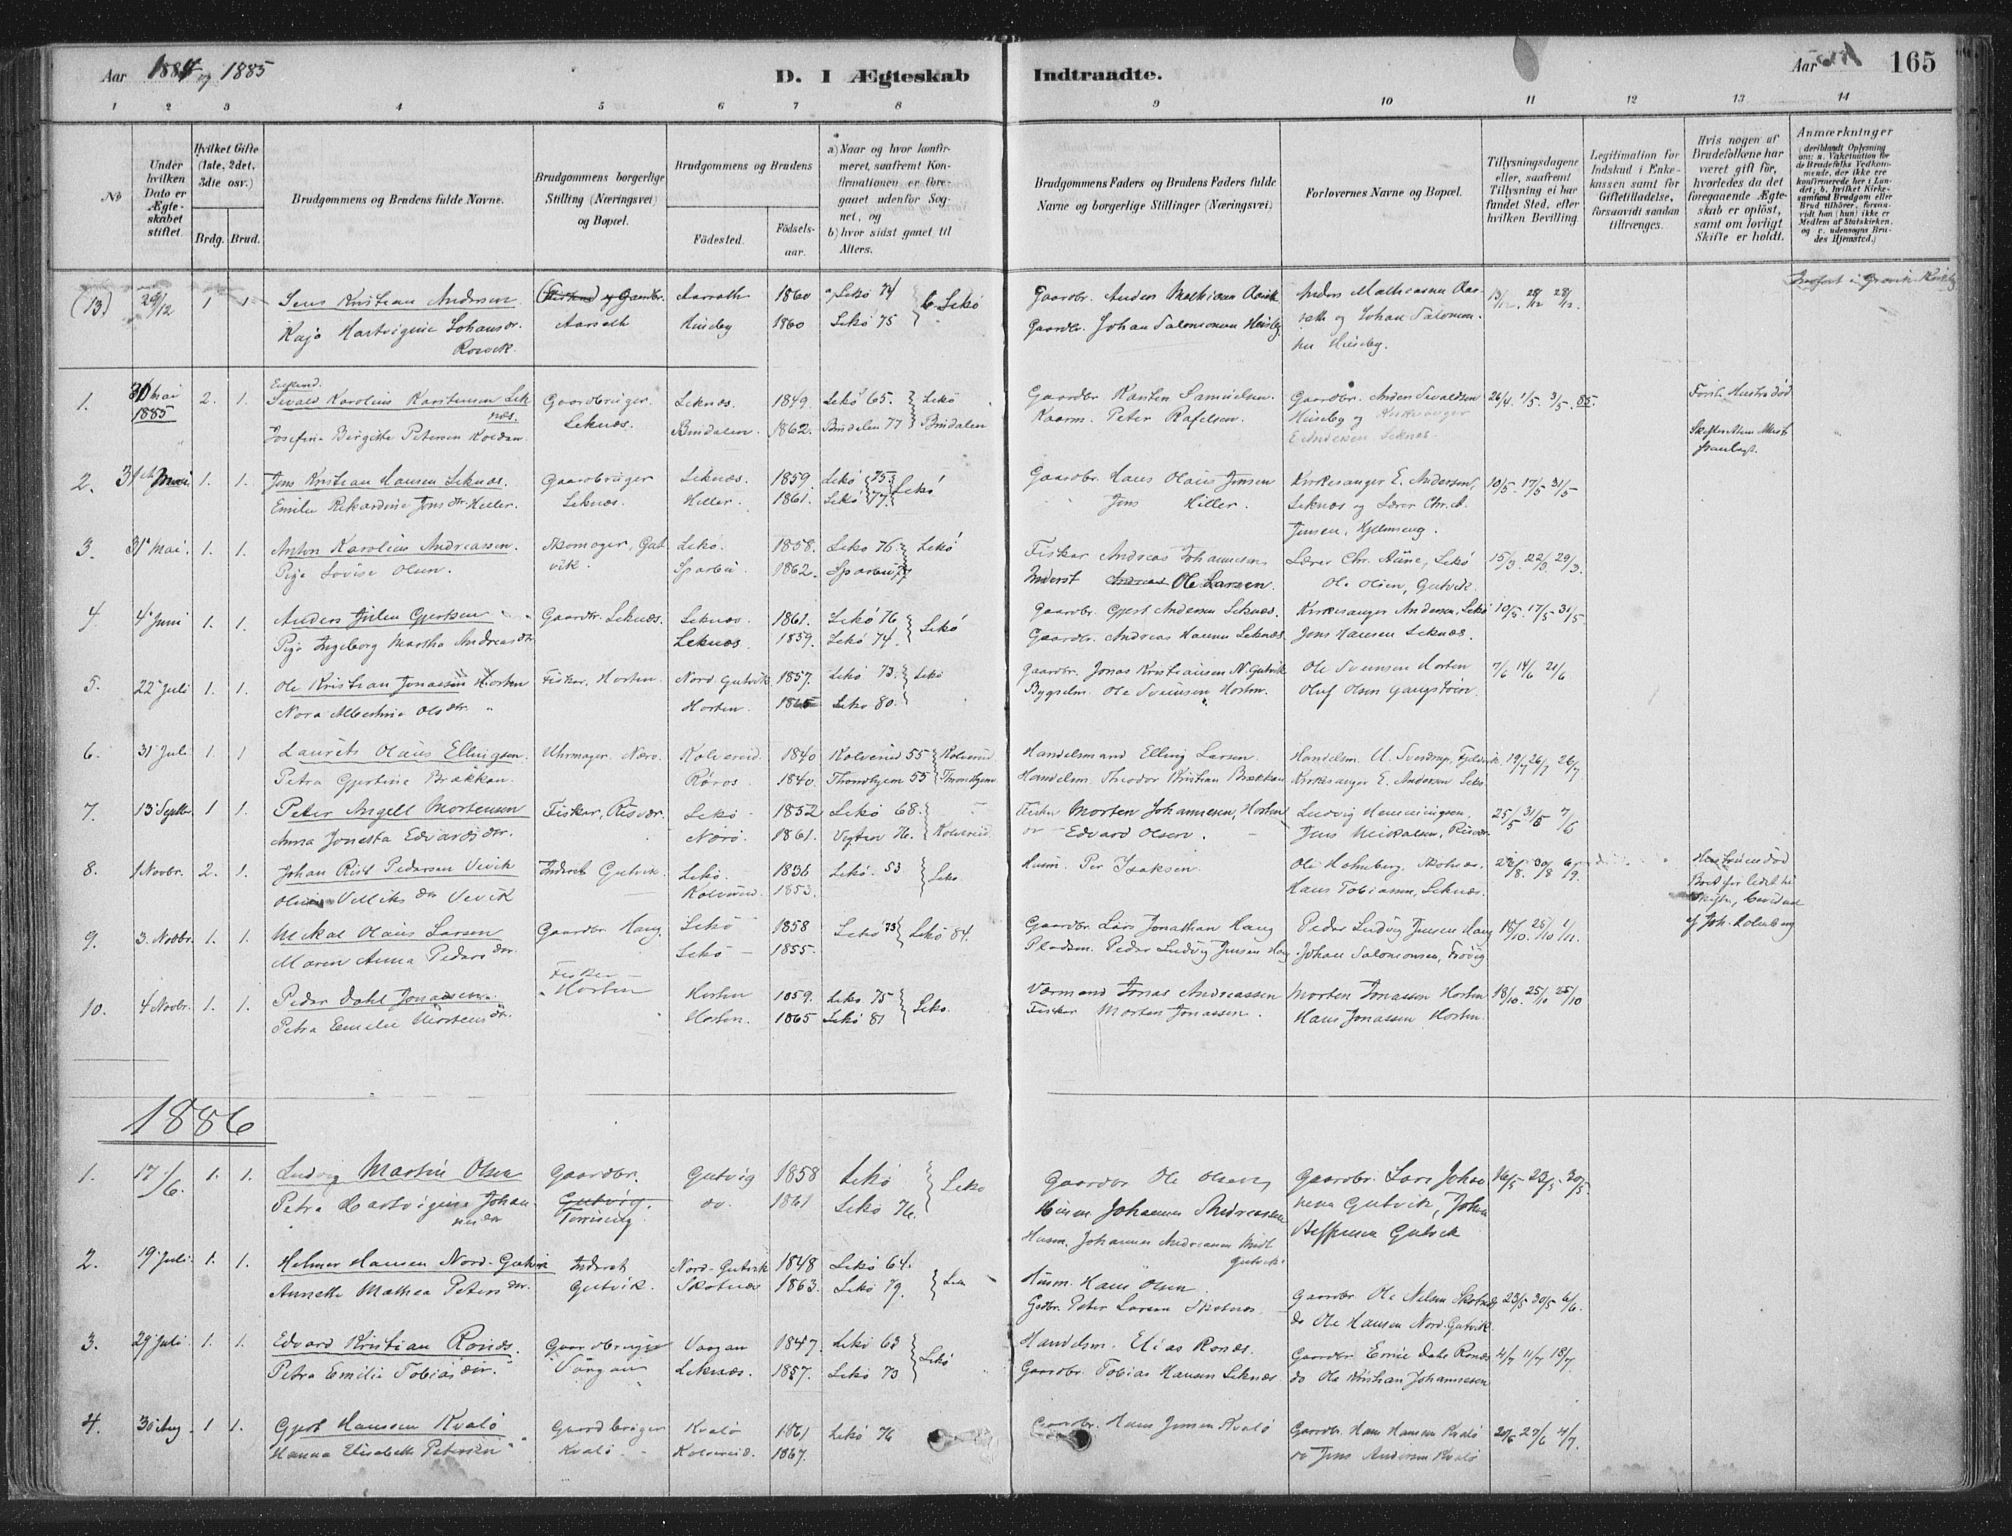 Aar 1884 og 1885
D. I Ægteskab Indtraadte.
Aar 165
1 2 3 4 5 6 7 8 9 10 11 12 13 14
No
Under hvilken Dato er Ægteskabet stiftet.
Hvilket Gifte (1ste, 2det, 3die osv.)
Brdg. Brud.
Brudgommens og Brudens fulde Navne.
Brudgommens borgerlige Stilling (Næringsvei) og Bopæl.
Brudgommens og Brudens
Fødested.
Fødselsaar.
a) Naar og hvor konfirmeret, saafremt Konfirmationen er foregaaet udenfor Sognet, og
b) hvor sidst gaaet til Alters.
Brudgommens Faders og Brudens Faders fulde Navne og borgerlige Stillinger (Næringsvei)
Forlovernes Navne og Bopæl.
Tillysningsdagene eller, saafremt Tillysning ei har fundet Sted, efter hvilken Bevilling.
Legitimation for Indskud i Enkekassen samt for Giftetilladelse, forsaavidt saadan tiltrænges.
Hvis nogen af Brudefolkene har været gift før, hvorledes da det foregaaende Ægteskab er opløst, samt om lovligt Skifte er holdt.
Anmærkninger (deriblandt Oplysning om: a. Vakcination for de Brudefolks Vedkommende, der ikke ere konfirmerede her i Landet; b. hvilket Kirkesamfund Brudgom eller Brud tilhører, forsaavidt han (hun) ikke er Medlem af Statskirken, og c. udensogns Brudes Hjemsted.)
(13) 29/12 1 1 Jens Kristian Andersen og Gaardbr. Aarseth 1860 Lekø 74 b Lekø Gaardbr. Anders Mathiasen Anders Mathiasen 13/12 28/12 28/12
Kaja Hartvigine Johansdr. Aarseth Huseby 1860 Lekø 75 Gaardbr. Johan Salomonsen Huseby og Johan Salomonsen Huseby.
1. 30 Mai 1885 2. 1. Enkemd. Sivald Karolius Karstensen Leknæs. Gaardbruger Leknæs. Leknæs. 1849. Lekø 65. Lekø Gaardbr. Karsten Samuelsen. Gaardbr. Anders Sivaldsen 26/4 1/5 3/5 85. Første Hustru død
Josefine Birgitte Petersen Brudalen. 1862. Brudalen 77 Brudalen Kaarm. Peter Rafelsen. Huseby og Kirkesanger E. Andersen Leknæs.
2. 31te Mai 1. 1. Jens Kristian Hansen Leknæs. Gaardbruger Leknæs. Leknæs. 1859. Lekø 75 Lekø Gaardbr. Hans Olaus Jensen Kirkesanger E. Andersen, 10/5 17/5 31/5
Emilie Rikardine Jensdr. Heller. Heller. 1861. Lekø 77. Jens Hiller. Leknæs og Lærer Chr. A. Jensen, Hjelmseng.
3. 31te Mai. 1. 1. Anton Karolius Andreassen. Skomager, Gutvik. Lekø. 1858. Lekø 76 Lekø Fisker Andreas Johannesen Lærer Chr. Aune, Lekø 15/3 22/3 29/3.
Pige Lovise Olsen. Sparbu 1862. Sparbu 77 Inderst Ole Larsen. Ole Olsen, Gutvik.
4. 4 Juni 1. 1. Anders Julin Gjertsen Gaardbr. Leknæs. Leknæs 1861. Lekø 76 Lekø Gaardbr. Gjert Andersen Leknæs. Kirkesanger Andersen, Lekø 10/5 17/5 31/5
Pige Ingeborg Martha Andreasdr. Leknæs 1859. Lekø 74. Gaardbr. Andreas Hansen Leknæs. Jens Hansen Leknæs.
5. 22 Juli 1. 1. Ole Kristian Jonassen Horten Fisker, Horten. Nord Gutvik 1857. Lekø 73. Lekø Gaardbr. Jonas Kristiansen N. Gutvik Ole Svensen Horten 7/6 14/6 21/6
Nora Albertine Olsdr. Horten. 1865 Lekø 80. Bygselm. Ole Svensen Horten. Oluf Olsen Gangstøen.
6. 31 Juli 1 1 Laurits Olaus Ellingsen Uhrmager, Nærø. Kolvereid 1840 Kolvereid 55 Kolvereid Handelsmand Elling Larsen. Handelsm. U. Sverdrup, Fjeldvik 19/7 26/7 26/7
Petra Gjertine Brækkan. Røros 1840. Throndhjem 55 Throndhjem Handelsm. Theodor Kristian Brækkan Kirkesanger E. Andersen Lekø
7. 13 Septbr. 1 1 Peter Angell Mortensen Fisker, Risvær. Lekø 1852 Lekø 68. Fisker Morten Johannesen, Horten Ludvig Henningsen, 25/5 31/5 7/6
Anna Jonetta Edvardsdr. Nærø. 1861. 76. Kolvereid. Edvard Olsen. Jens Mikalsen, Risvær
8. 1 Novbr. 2. 1. Johan Pedersen Vevik Inderst Gutvik. Lekø 1836 Lekø 53 Lekø Husm. Per Isaksen. Ole Holmberg, Skotnæs 30/8 6/9.
Vevik Kolvereid 1853. Hans Tobiassen, Leknæs.
9. 3. Novbr. 1. 1. Mikal Olaus Larsen Gaardbr. Haug. Lekø 1858 Lekø 73 Lekø 84. Gaardbr. Lars Jonathan Haug Peder Ludvig Jensen Haug 18/10 25/10 1/11.
Maren Anna Pedersdr. Lekø 1855. Pladsm. Peder Ludvig Jensen Haug Johan Salomonsen, Frøvig
10. 4 Novbr. 1. 1. Peder Dahl Jonassen. Fisker Horten Horten 1859. Lekø 75 Lekø. Værmand Jonas Andreassen Morten Jonassen Horten 18/10 25/10 25/10
Petra Emelie Mortensdr. Horten. 1865 Lekø 81 Fisker Morten Jonassen. Hans Jonassen Horten.
1886
1. 17/6. 1. 1. Ludvig Martin Olsen Gaardbr. Gutvig 1858 Lekø Lekø Gaardbr Ole Olsen Gaardbr. Lars Johannesen 16/5 23/5 30/5
Petra Hartvigine Johannesdr Gutvig. Torrising. do. 1861 Lekø 76. Husm Johannes Andreassen Gutvik, Johan
Husm. Johannes Andreassen Midt Gutvik. Gutvik
2. 19 Juli 1. 1. Helmer Hansen Nord-Gutvik Inderst Nord-Gutvik 1848 Lekø 64. Lekø Husm. Hans Olsen Gaardbr. Ole Nilsen Skotnæs 23/5 30/5 6/6.
Annette Mathea Petersdr. Gutvik. Skotnæs 1863. Lekø 79. Gdbr. Peter Larsen Skotnæs. do Ole Hansen Nord-Gutvik.
3. 29 Juli 1. 1. Edvard Kristian Ronæs. Gaardbruger Vaagan 1847. Lekø 63 Lekø Handelsm. Elias Ronæs. Gaardbr. Emil Dahl Ronæs 4/7 11/7 18/7
Petra Emilie Tobiasdr. Vaagan Leknæs. 1857. Lekø 73 Gaardbr. Tobias Hansen Leknæs do Ole Kristian Johannesen
4. 30 Aug. 1 1. Gjert Hansen Kvalø Gaardbruger Kvalø 1861 Lekø 76 Gaardbr. Hans Jensen Kvalø Gaardbr. Hans Hansen Kvalø 20/6 27/6 4/7.
Hanna Elisabeth Petersen Kvalø Kolvereid. 1867. do Jens Andersen Kvalø